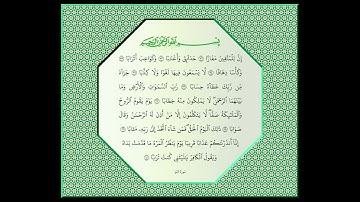 بسم الله الرحمن الرحيم
إِنَّ لِلْمُتَّقِينَ مَفَازًا ۝ حَدَائِقَ وَأَعْنَابًا ۝ وَكَوَاعِبَ أَتْرَابًا ۝
وَكَأْسًا دِهَاقًا ۝ لَا يَسْمَعُونَ فِيهَا لَغْوًا وَلَا كِذَّابًا ۝ جَزَاءً
مِنْ رَبِّكَ عَطَاءً حِسَابًا ۝ رَبِّ السَّمَوَاتِ وَالْأَرْضِ وَمَا
بَيْنَهُمَا الرَّحْمَنِ لَا يَمْلِكُونَ مِنْهُ خِطَابًا ۝ يَوْمَ يَقُومُ الرُّوحُ
وَالْمَلَائِكَةُ صَفًّا لَا يَتَكَلَّمُونَ إِلَّا مَنْ أَذِنَ لَهُ الرَّحْمَنُ وَقَالَ
صَوَابًا ۝ ذَلِكَ الْيَوْمُ الْحَقُّ فَمَنْ شَاءَ اتَّخَذَ إِلَى رَبِّهِ مَآبًا ۝
إِنَّا أَنْذَرْنَاكُمْ عَذَابًا قَرِيبًا يَوْمَ يَنْظُرُ الْمَرْءُ مَا قَدَّمَتْ يَدَاهُ
وَيَقُولُ الْكَافِرُ يَا لَيْتَنِي كُنْتُ تُرَابًا ۝